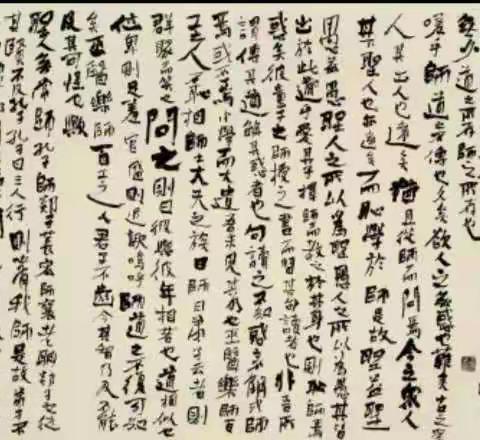 無少道之所存師之所存也
嗟乎師道之不傳也久矣欲人之無惑也難矣古之聖
人其出人也遠矣猶且從師而問焉今之衆人
其下聖人也亦遠矣而恥學於師是故聖益聖
愚益愚聖人之所以為聖愚人之所以為愚其皆
出於此乎愛其子擇師而教之於其身也則恥師焉
惑矣彼童子之師授之書而習其句讀者也非吾所
謂傳其道解其惑者也句讀之不知惑之不解或師
焉或不焉小學而大遺吾未見其明也巫醫樂師百
工之人不恥相師士大夫之族曰師曰弟子云者則
群聚而笑之問之則曰彼與彼年相若也道相似也
位卑則足羞官盛則近諛嗚呼師道之不復可知
矣巫醫樂師百工之人君子不齒今其智乃反不能
及其可怪也歟
聖人無常師孔子師郯子萇弘師襄老聃郯子之徒
其賢不及孔子孔子曰三人行則必有我師是故弟子不